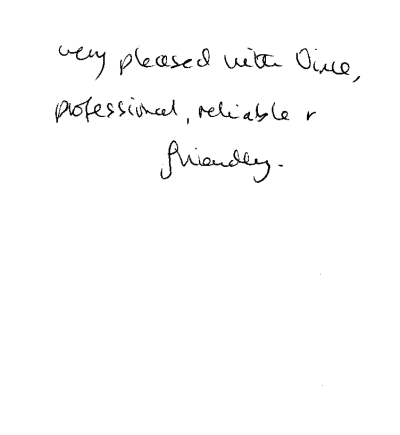 very pleased with Vince,
professional, reliable +
friendly.